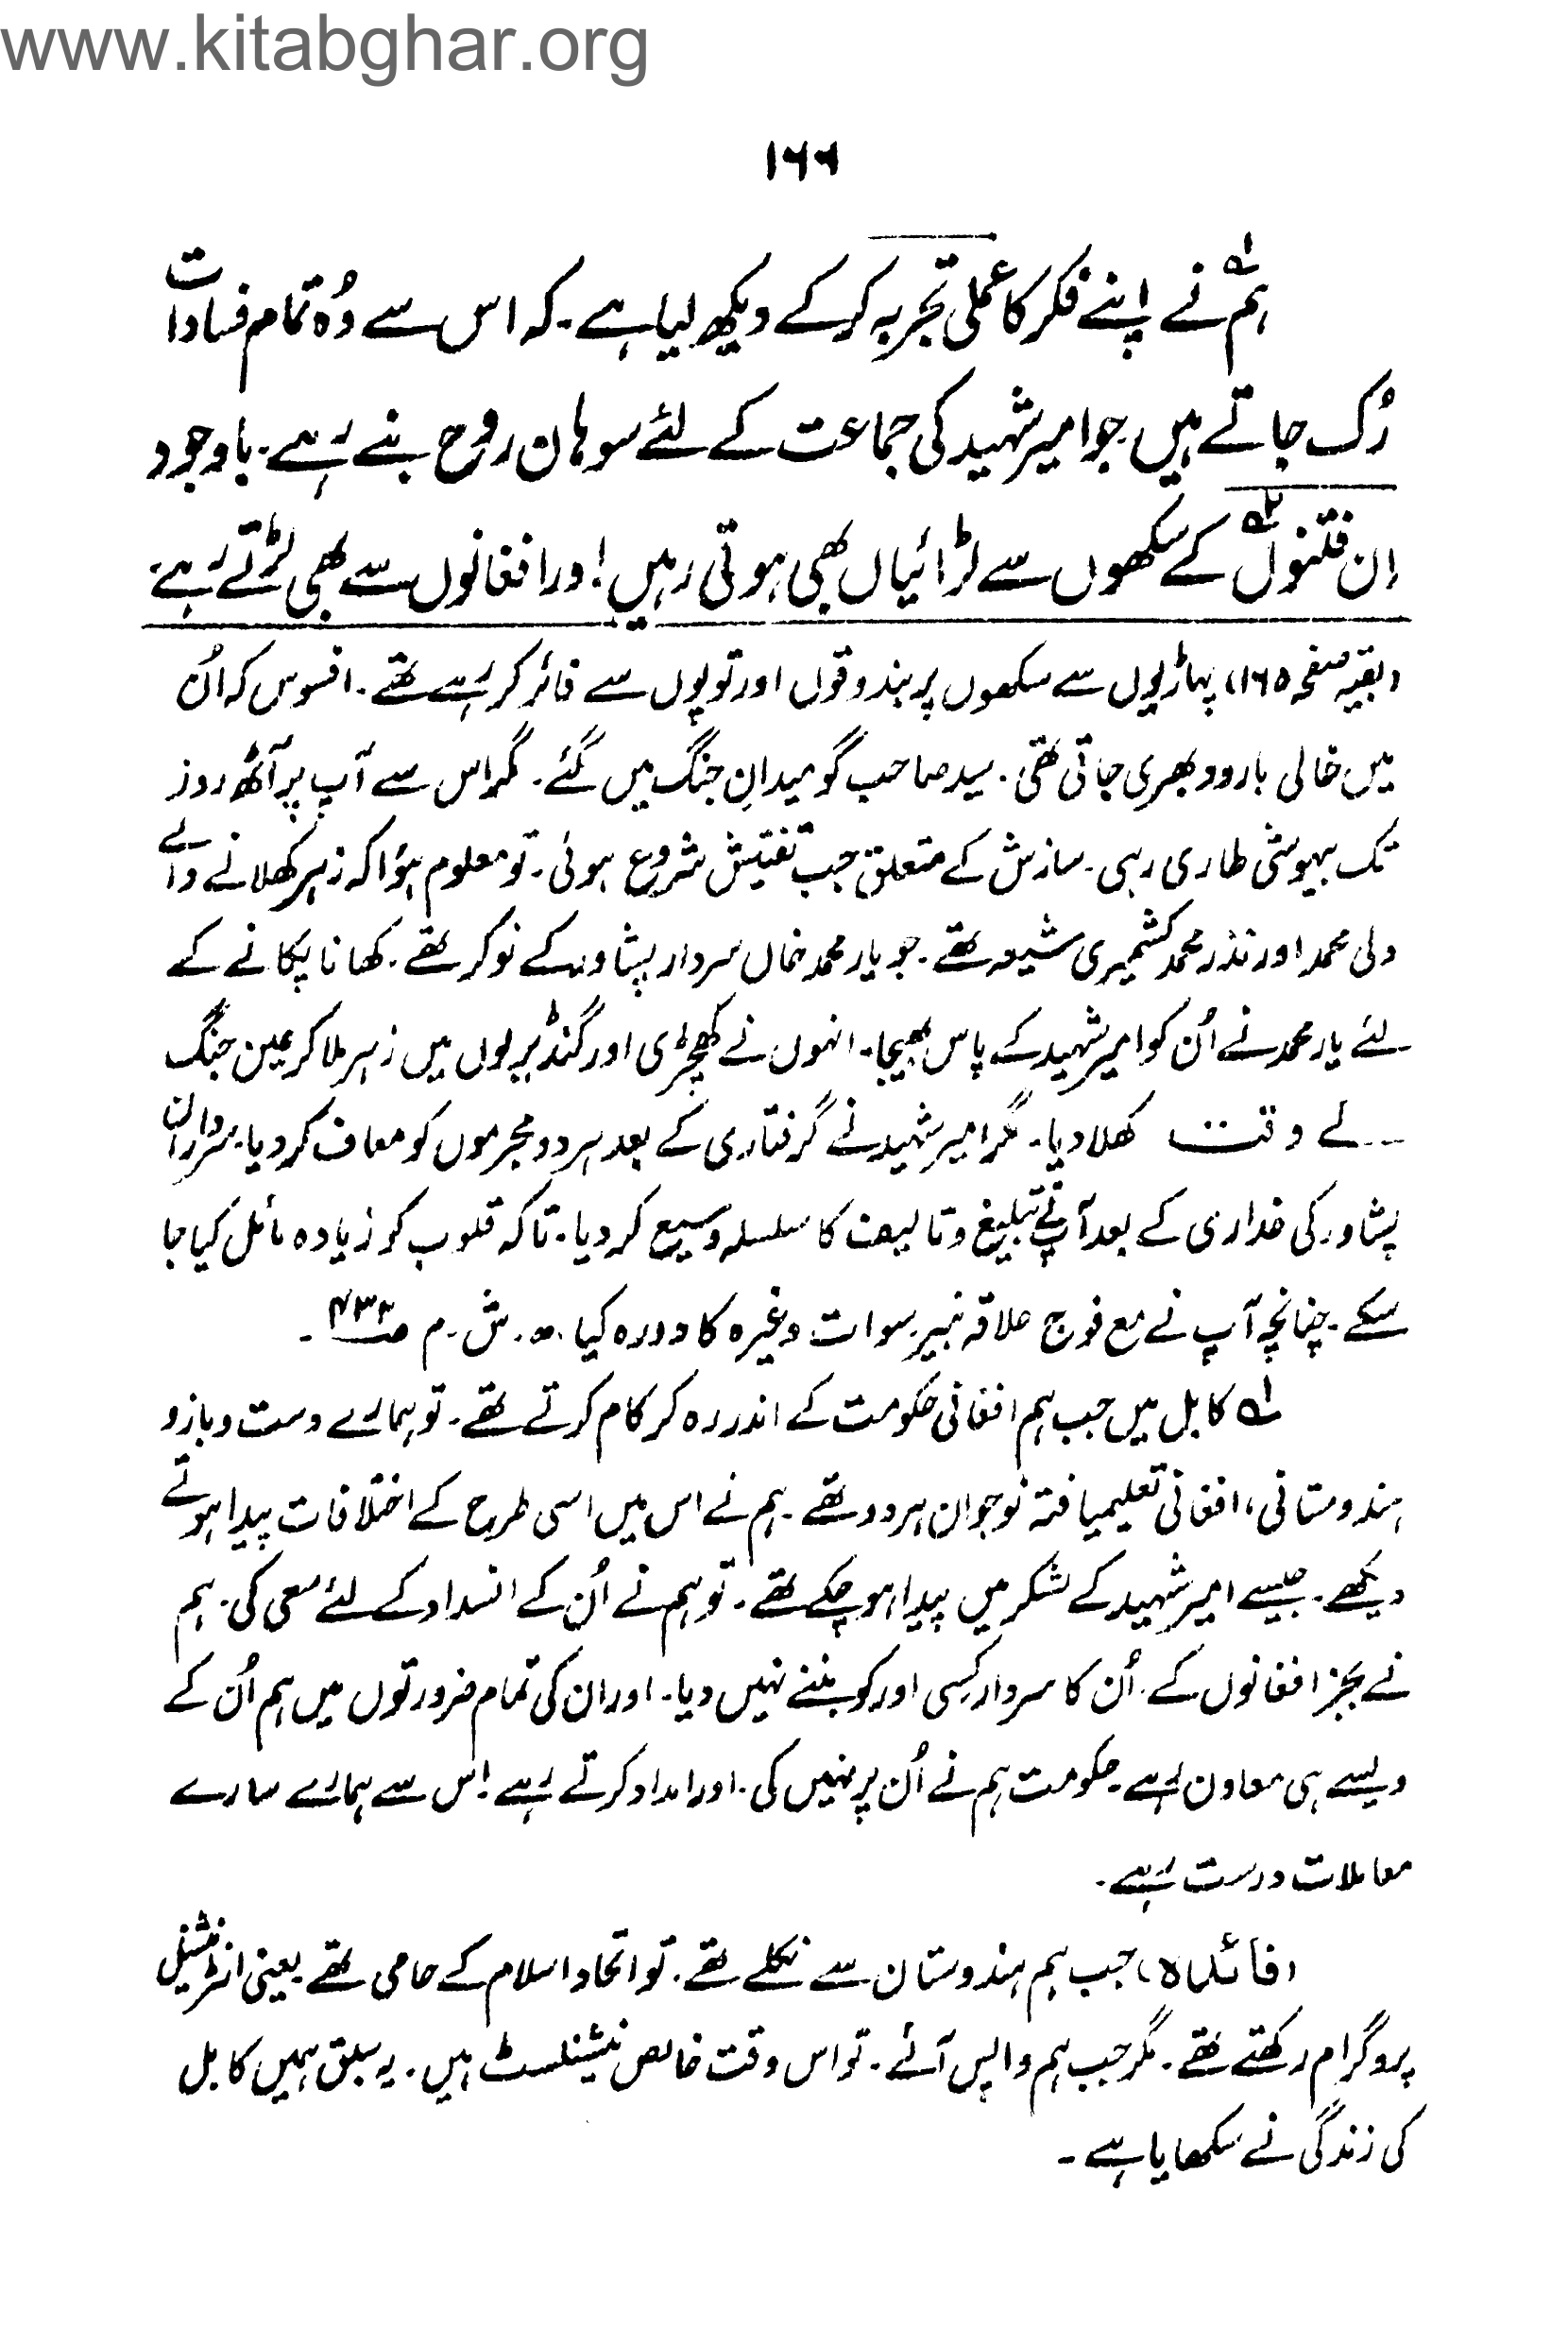 www.kitabghar.org
۱۶۶
ہم۱ نے اپنے فکر کا عملی تجربہ کرکے دیکھ لیا ہے۔ کہ اس سے وُہ تمام فسادات
رُک جاتے ہیں جو امیر شہید کی جماعت کے لئے سوہان روح بنے رہے۔ باوجود
اِن فتنوں۲ کے سکھوں سے لڑائیاں بھی ہوتی رہیں! اور افغانوں سے بھی لڑتے رہے۔
(بقیہ صفحہ ۱۶۵) پہاڑیوں سے سکھوں پر بندوقوں اور توپوں سے فائر کر رہے تھے۔ افسوس کہ اُن
میں خالی بارود بھری جاتی تھی۔ سید صاحب گو میدانِ جنگ میں گئے۔ مگر اس سے آپ پر آٹھ روز
تک بیہوشی طاری رہی۔ سازش کے متعلق جب تفتیش شروع ہوئی۔ تو معلوم ہؤا کہ زہر کھلانے والے
ولی محمد اور نذر محمد کشمیری شیعہ تھے۔ جو یار محمد خاں سردار پشاور کے نوکر تھے۔ کھانا پکانے کے
لئے یار محمد نے اُن کو امیر شہید کے پاس بھیجا۔ انہوں نے کھچڑی اور گنڈیریوں میں زہر ملا کر عین جنگ
کے وقت کھلا دیا۔ مگر امیر شہید نے گرفتاری کے بعد ہر دو مجرموں کو معاف کر دیا۔ سرداران
پشاور کی غداری کے بعد آپ نے تبلیغ و تالیف کا سلسلہ وسیع کر دیا۔ تاکہ قلوب کو زیادہ مائل کیا جا
سکے۔ چنانچہ آپ نے مع فوج علاقہ بنیر۔ سوات وغیرہ کا دورہ کیا ۔ ش۔ م
۱ کابل میں جب ہم افغانی حکومت کے اندر رہ کر کام کرتے تھے۔ تو ہمارے دست و بازو
ہندوستانی، افغانی تعلیمیافتہ نوجوان ہر دو تھے۔ ہم نے اس میں اسی طرح کے اختلافات پیدا ہوتے
دیکھے۔ جیسے امیر شہید کے لشکر میں پیدا ہو چکے تھے۔ تو ہم نے اُن کے انسداد کے لئے سعی کی۔ ہم
نے بجز افغانوں کے اُن کا سردار کسی اور کو بننے نہیں دیا۔ اور ان کی تمام ضرورتوں میں ہم اُن کے
ویسے ہی معاون رہے۔ حکومت ہم نے اُن پر نہیں کی۔ اور امداد کرتے رہے! اس سے ہمارے سارے
معاملات درست رہے۔
(فائدہ) جب ہم ہندوستان سے نکلے تھے۔ تو اتحاد اسلام کے حامی تھے۔ یعنی انٹرنیشنل
پروگرام رکھتے تھے۔ مگر جب ہم واپس آئے۔ تو اس وقت خالص نیشنلسٹ ہیں۔ یہ سبق ہمیں کابل
کی زندگی نے سکھایا ہے۔